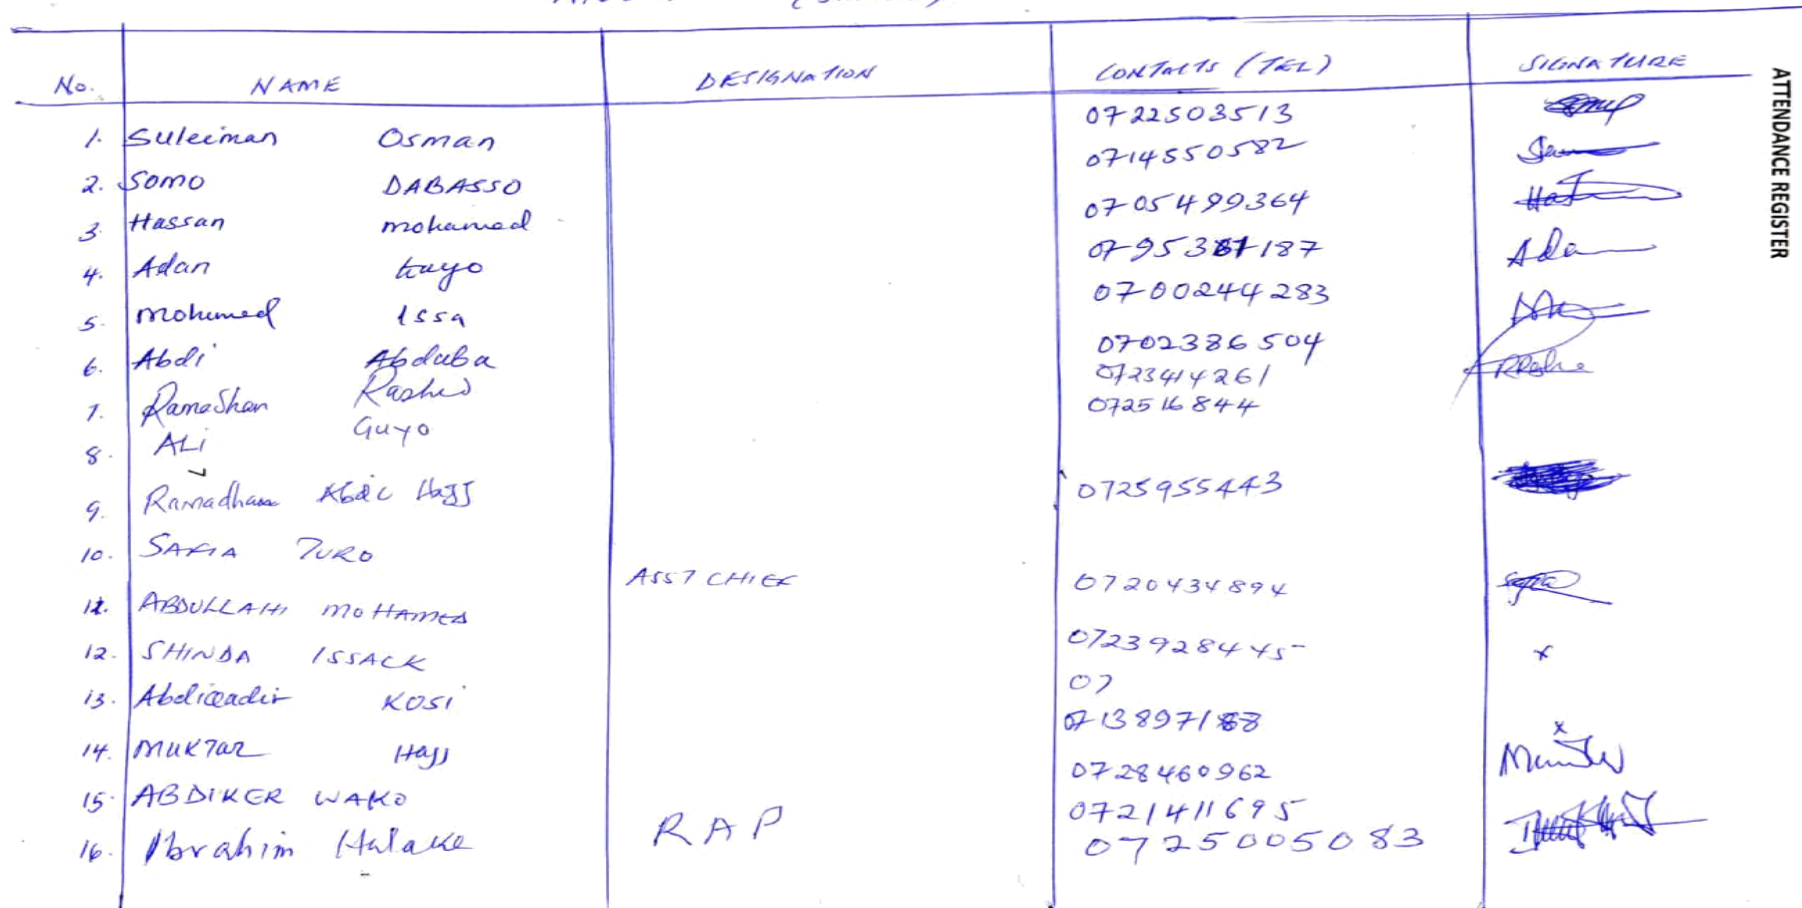 ATTENDANCE REGISTER
No. NAME DESIGNATION CONTACTS (TEL) SIGNATURE
1. Suleiman Osman 0722503513
2. Somo DABASSO 0714550582
3. Hassan mohamed 0705499364
4. Adan 0795387187 Ada
5. mohamed Issa 0700244283
6. Abdi Abduba 0702386504
7. Ramadhan Rashid 0723414261
8. ALi Guyo 072516844
9. Ramadhan Abdi Hajj 0725955443
10. SAFIA TURO ASST CHIEF 0720434894
11. ABDULLAHI MOHAMED 0723928445 x
12. SHINDA ISSACK 07
13. Abdiqadir KOSI 0713897188 x
14. MUKTAR Hajj 0728460962
15. ABDIKER WAKO 0721411695
16. Ibrahim Halake RAP 0725005083